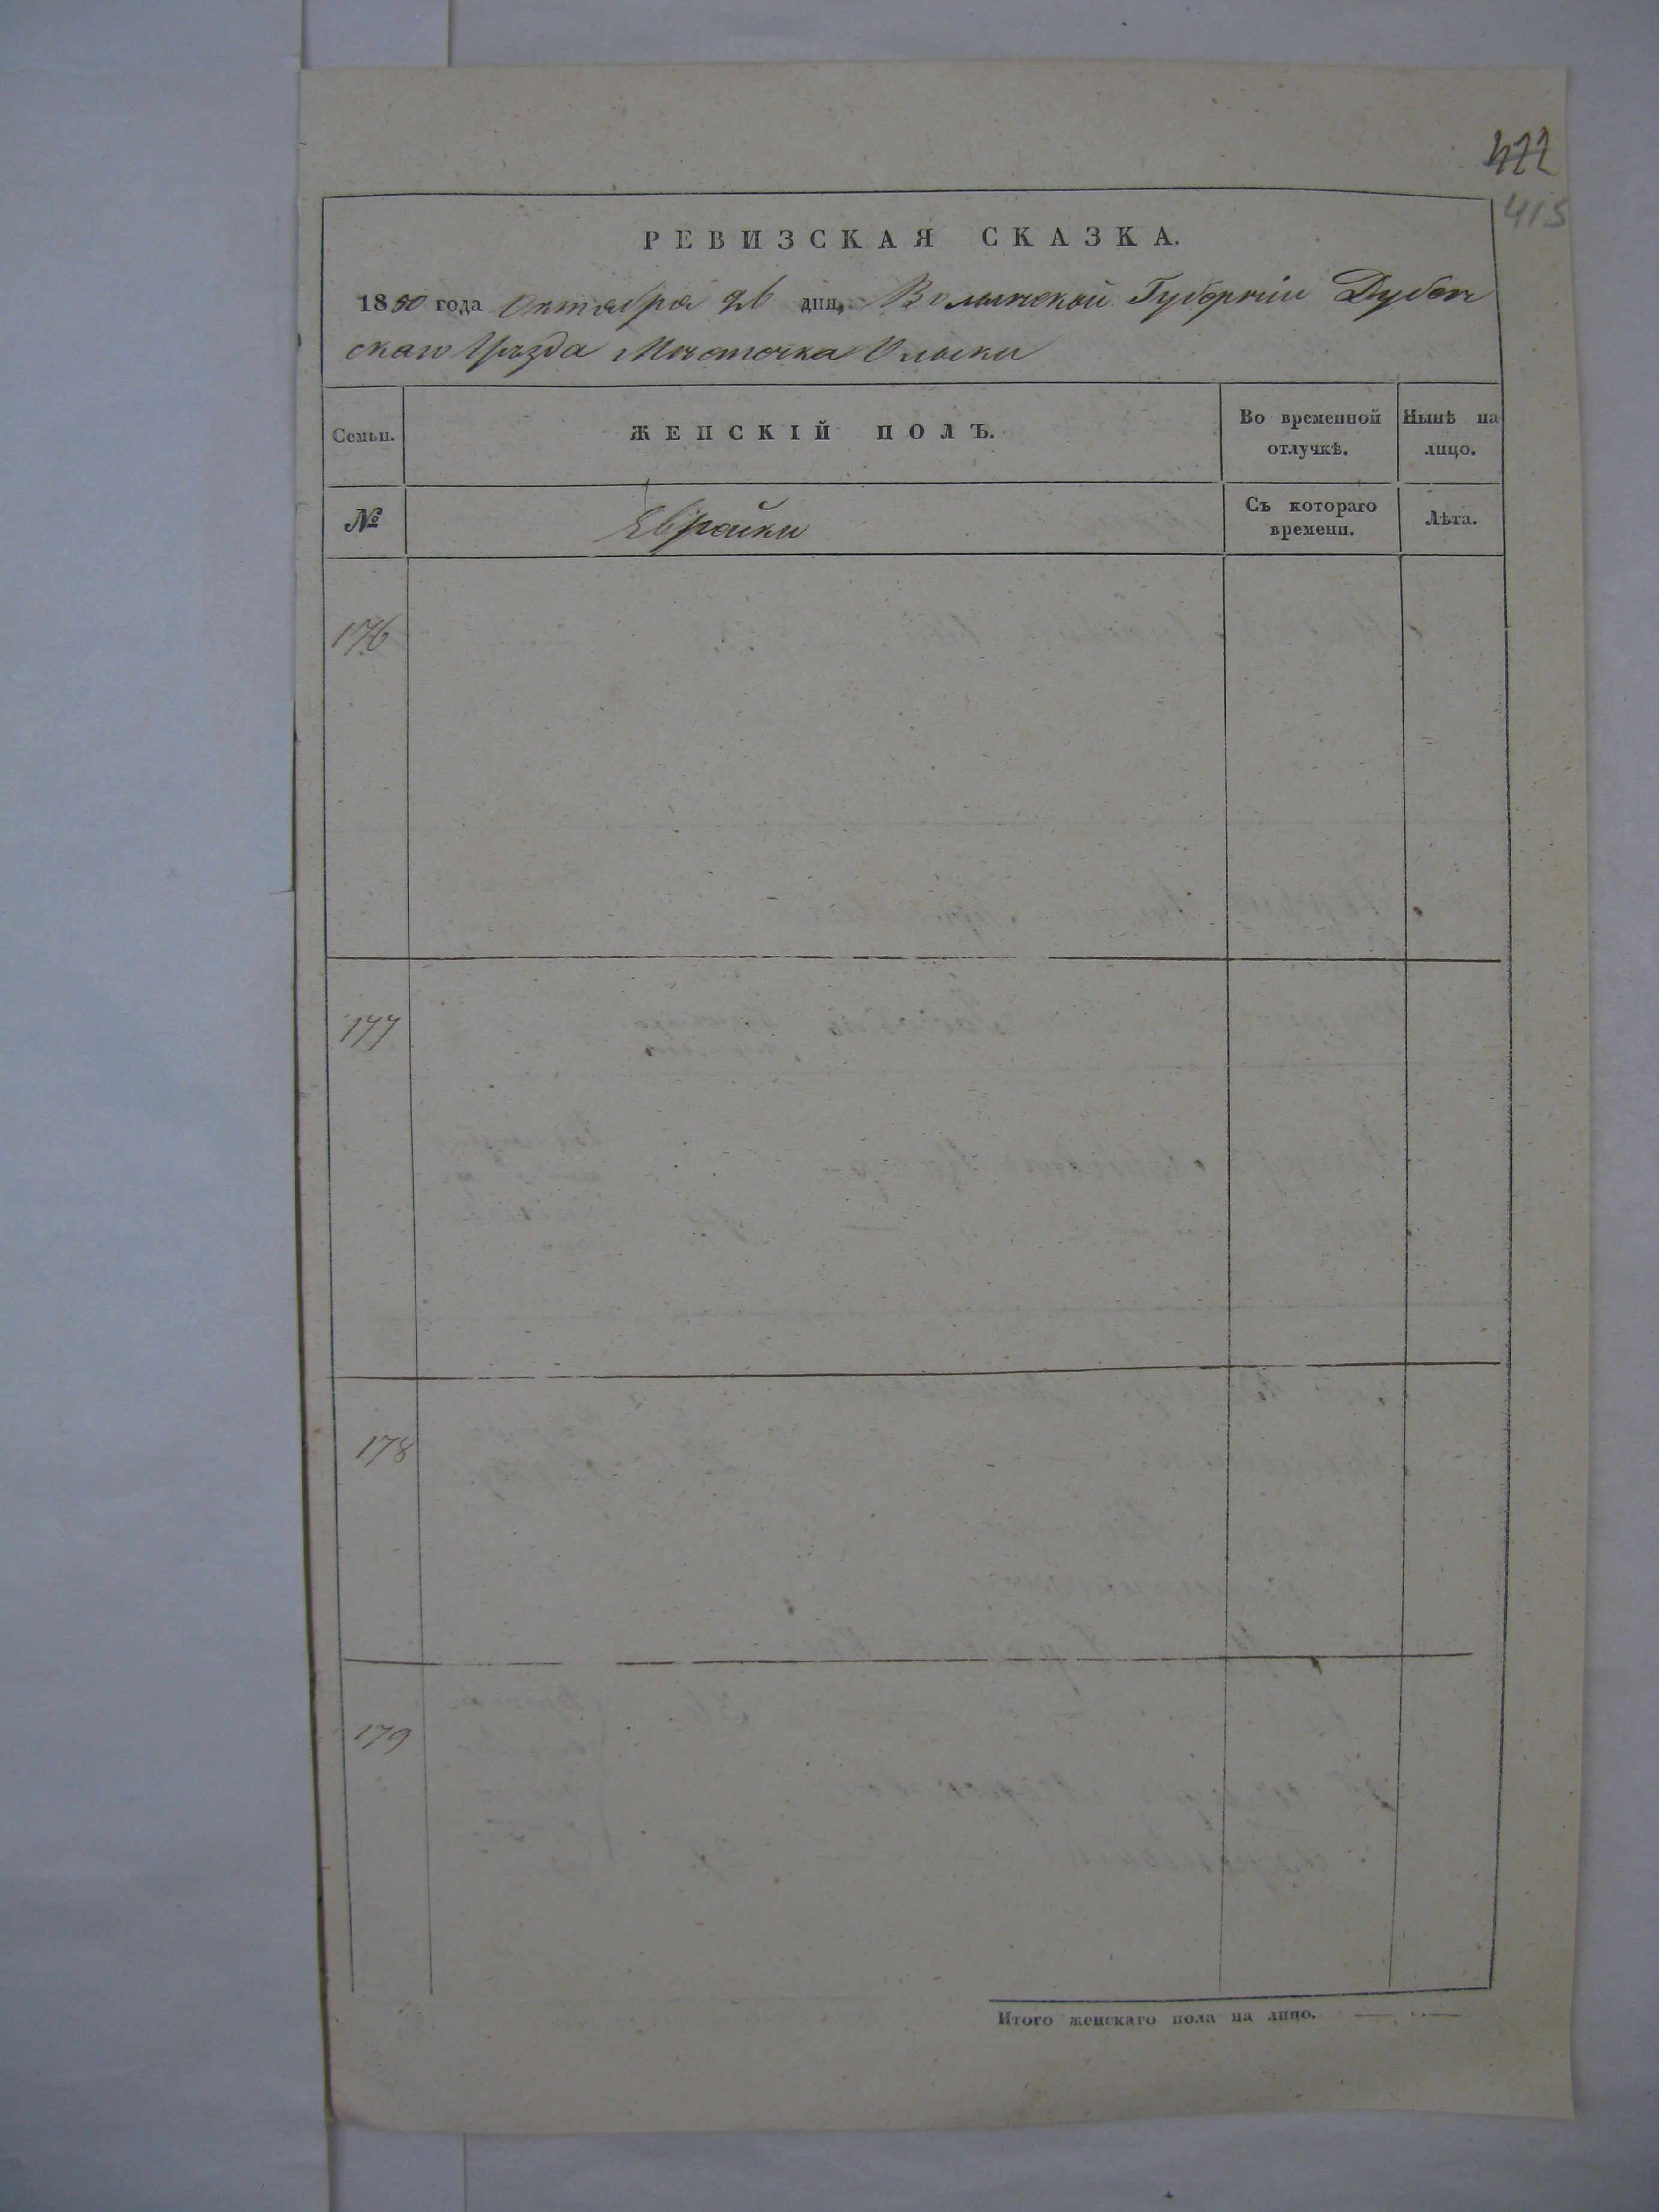 422
415
РЕВИЗСКАЯ СКАЗКА.
1850 года Октября 26 дня, Волынской Губернии Дубен
скаго Уѣзда Мѣстечка Олыки
Семьи.
ЖЕНСКІЙ ПОЛЪ.
Во временной отлучкѣ.
Нынѣ на лицо.
№
Еврейки
Съ котораго времени.
Лѣта.
176
177
178
179
Итого женскаго пола на лицо.